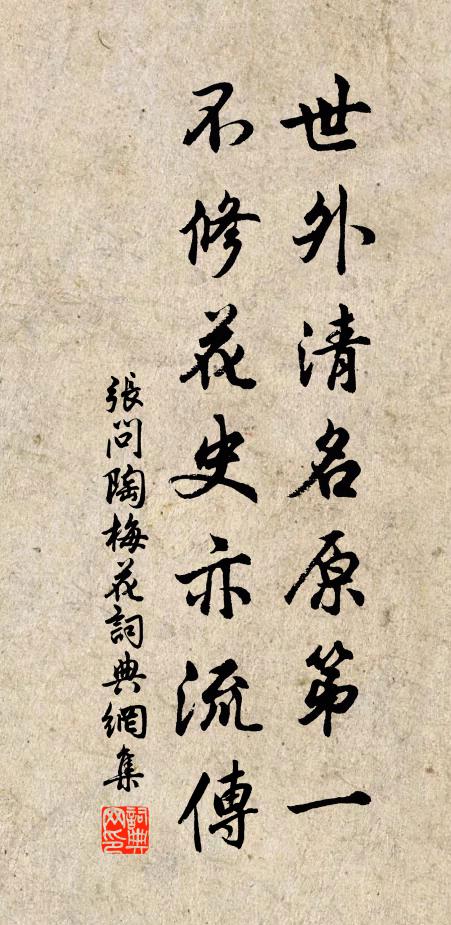 世外清名原第一
不修花史亦流傳
張問陶梅花詞典網集
詞典
网印